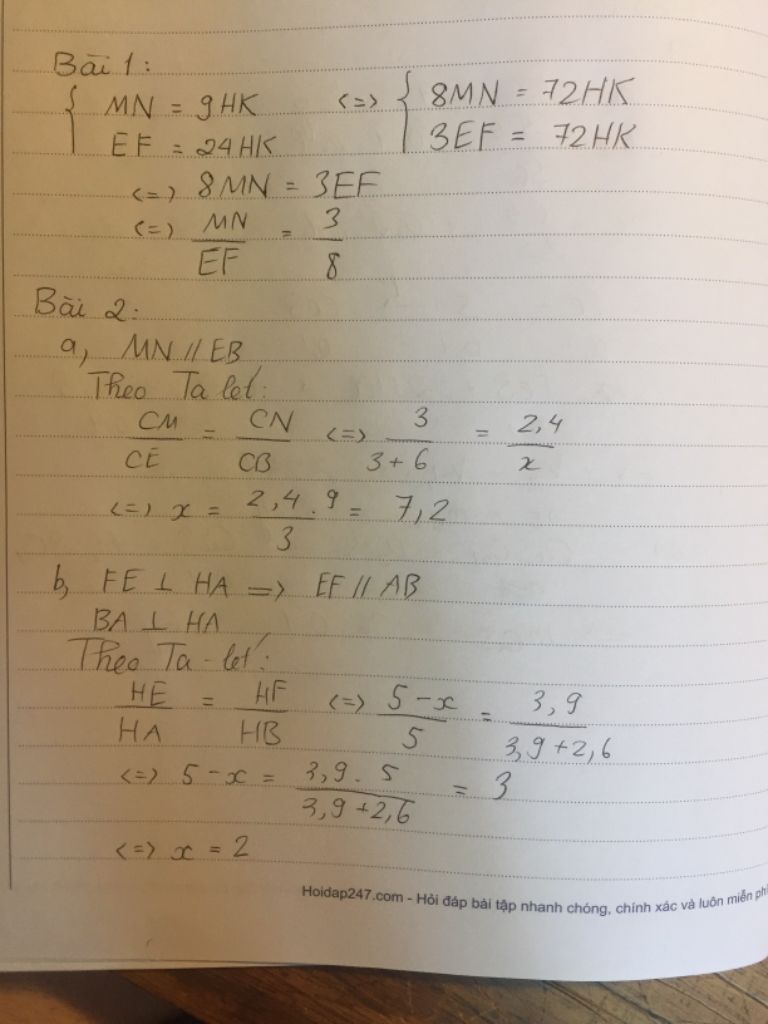 Bài 1:
{ MN = 9HK <=> { 8MN = 72HK
EF = 24HK 3EF = 72HK
<=> 8MN = 3EF
<=> MN/EF = 3/8
Bài 2:
a, MN // EB
Theo Ta lét:
CM/CE = CN/CB <=> 3/(3+6) = 2,4/x
<=> x = (2,4.9)/3 = 7,2
b, FE ⊥ HA => EF // AB
BA ⊥ HA
Theo Ta-lét:
HE/HA = HF/HB <=> (5-x)/5 = 3,9/(3,9+2,6)
<=> 5-x = (3,9.5)/(3,9+2,6) = 3
<=> x = 2
Hoidap247.com - Hỏi đáp bài tập nhanh chóng, chính xác và luôn miễn phí